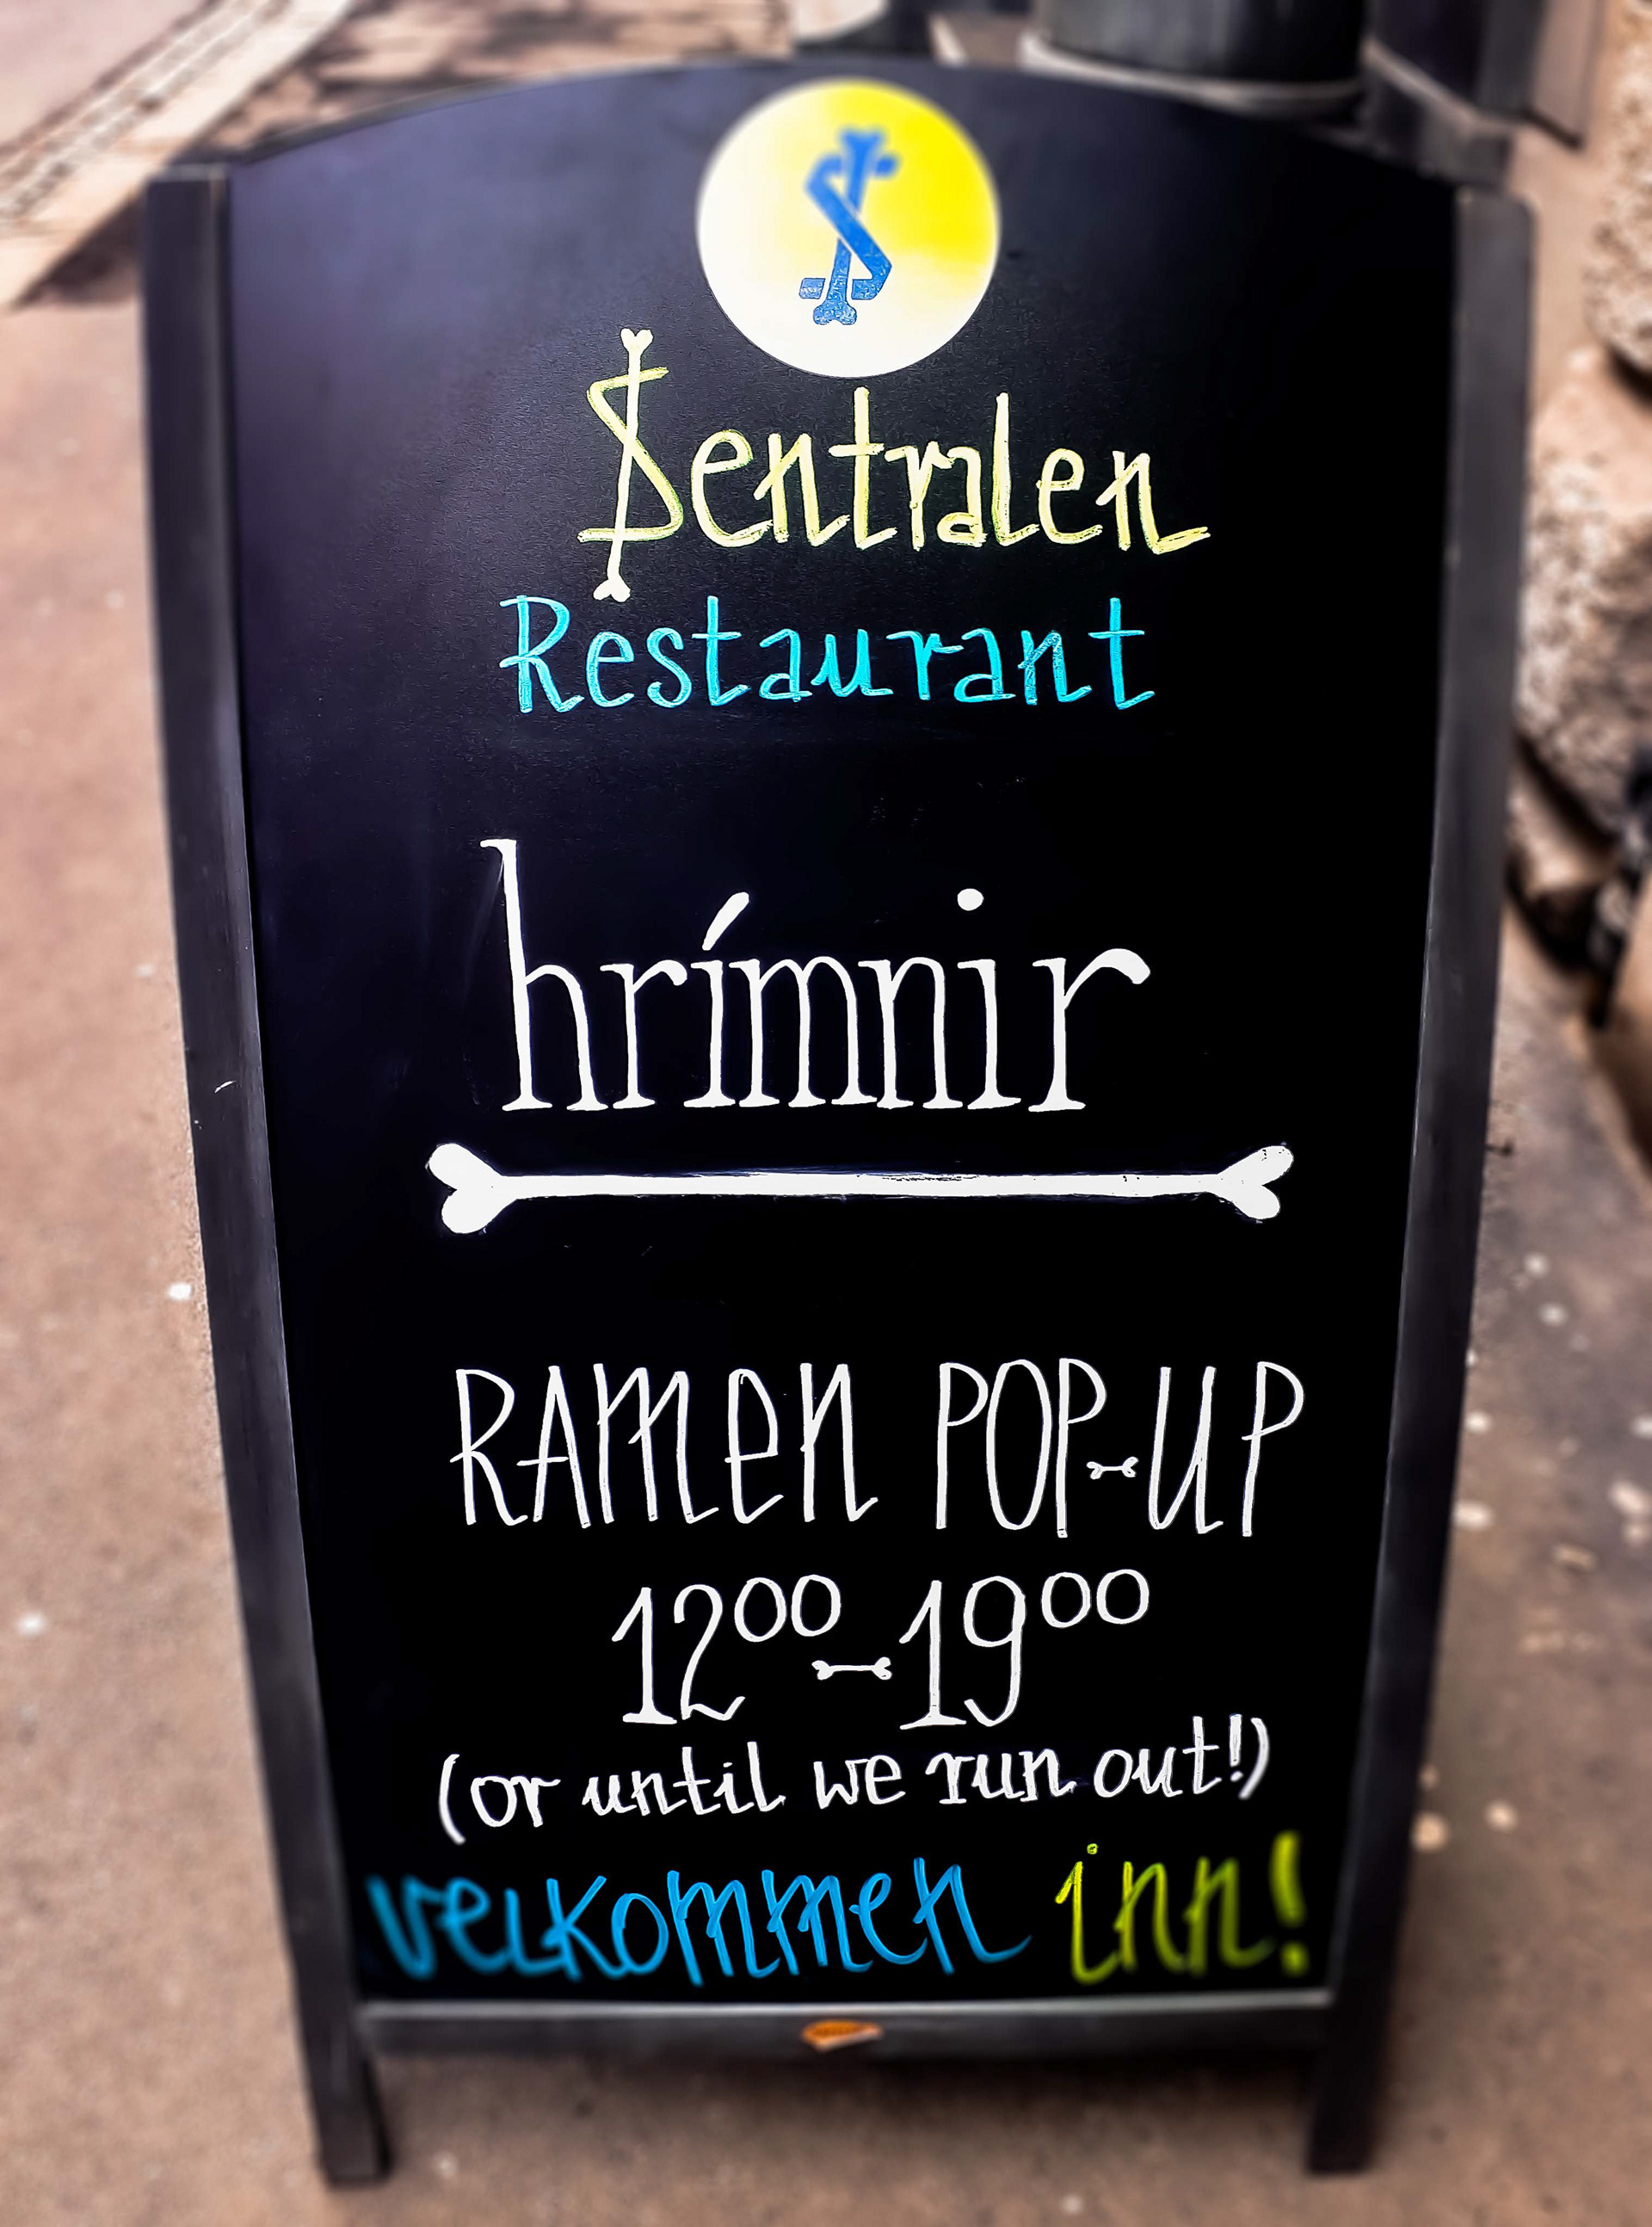 Sentralen
Restaurant
hrímnir
RAMEN POP-UP
12⁰⁰-19⁰⁰
(or until we run out!)
velkommen inn!